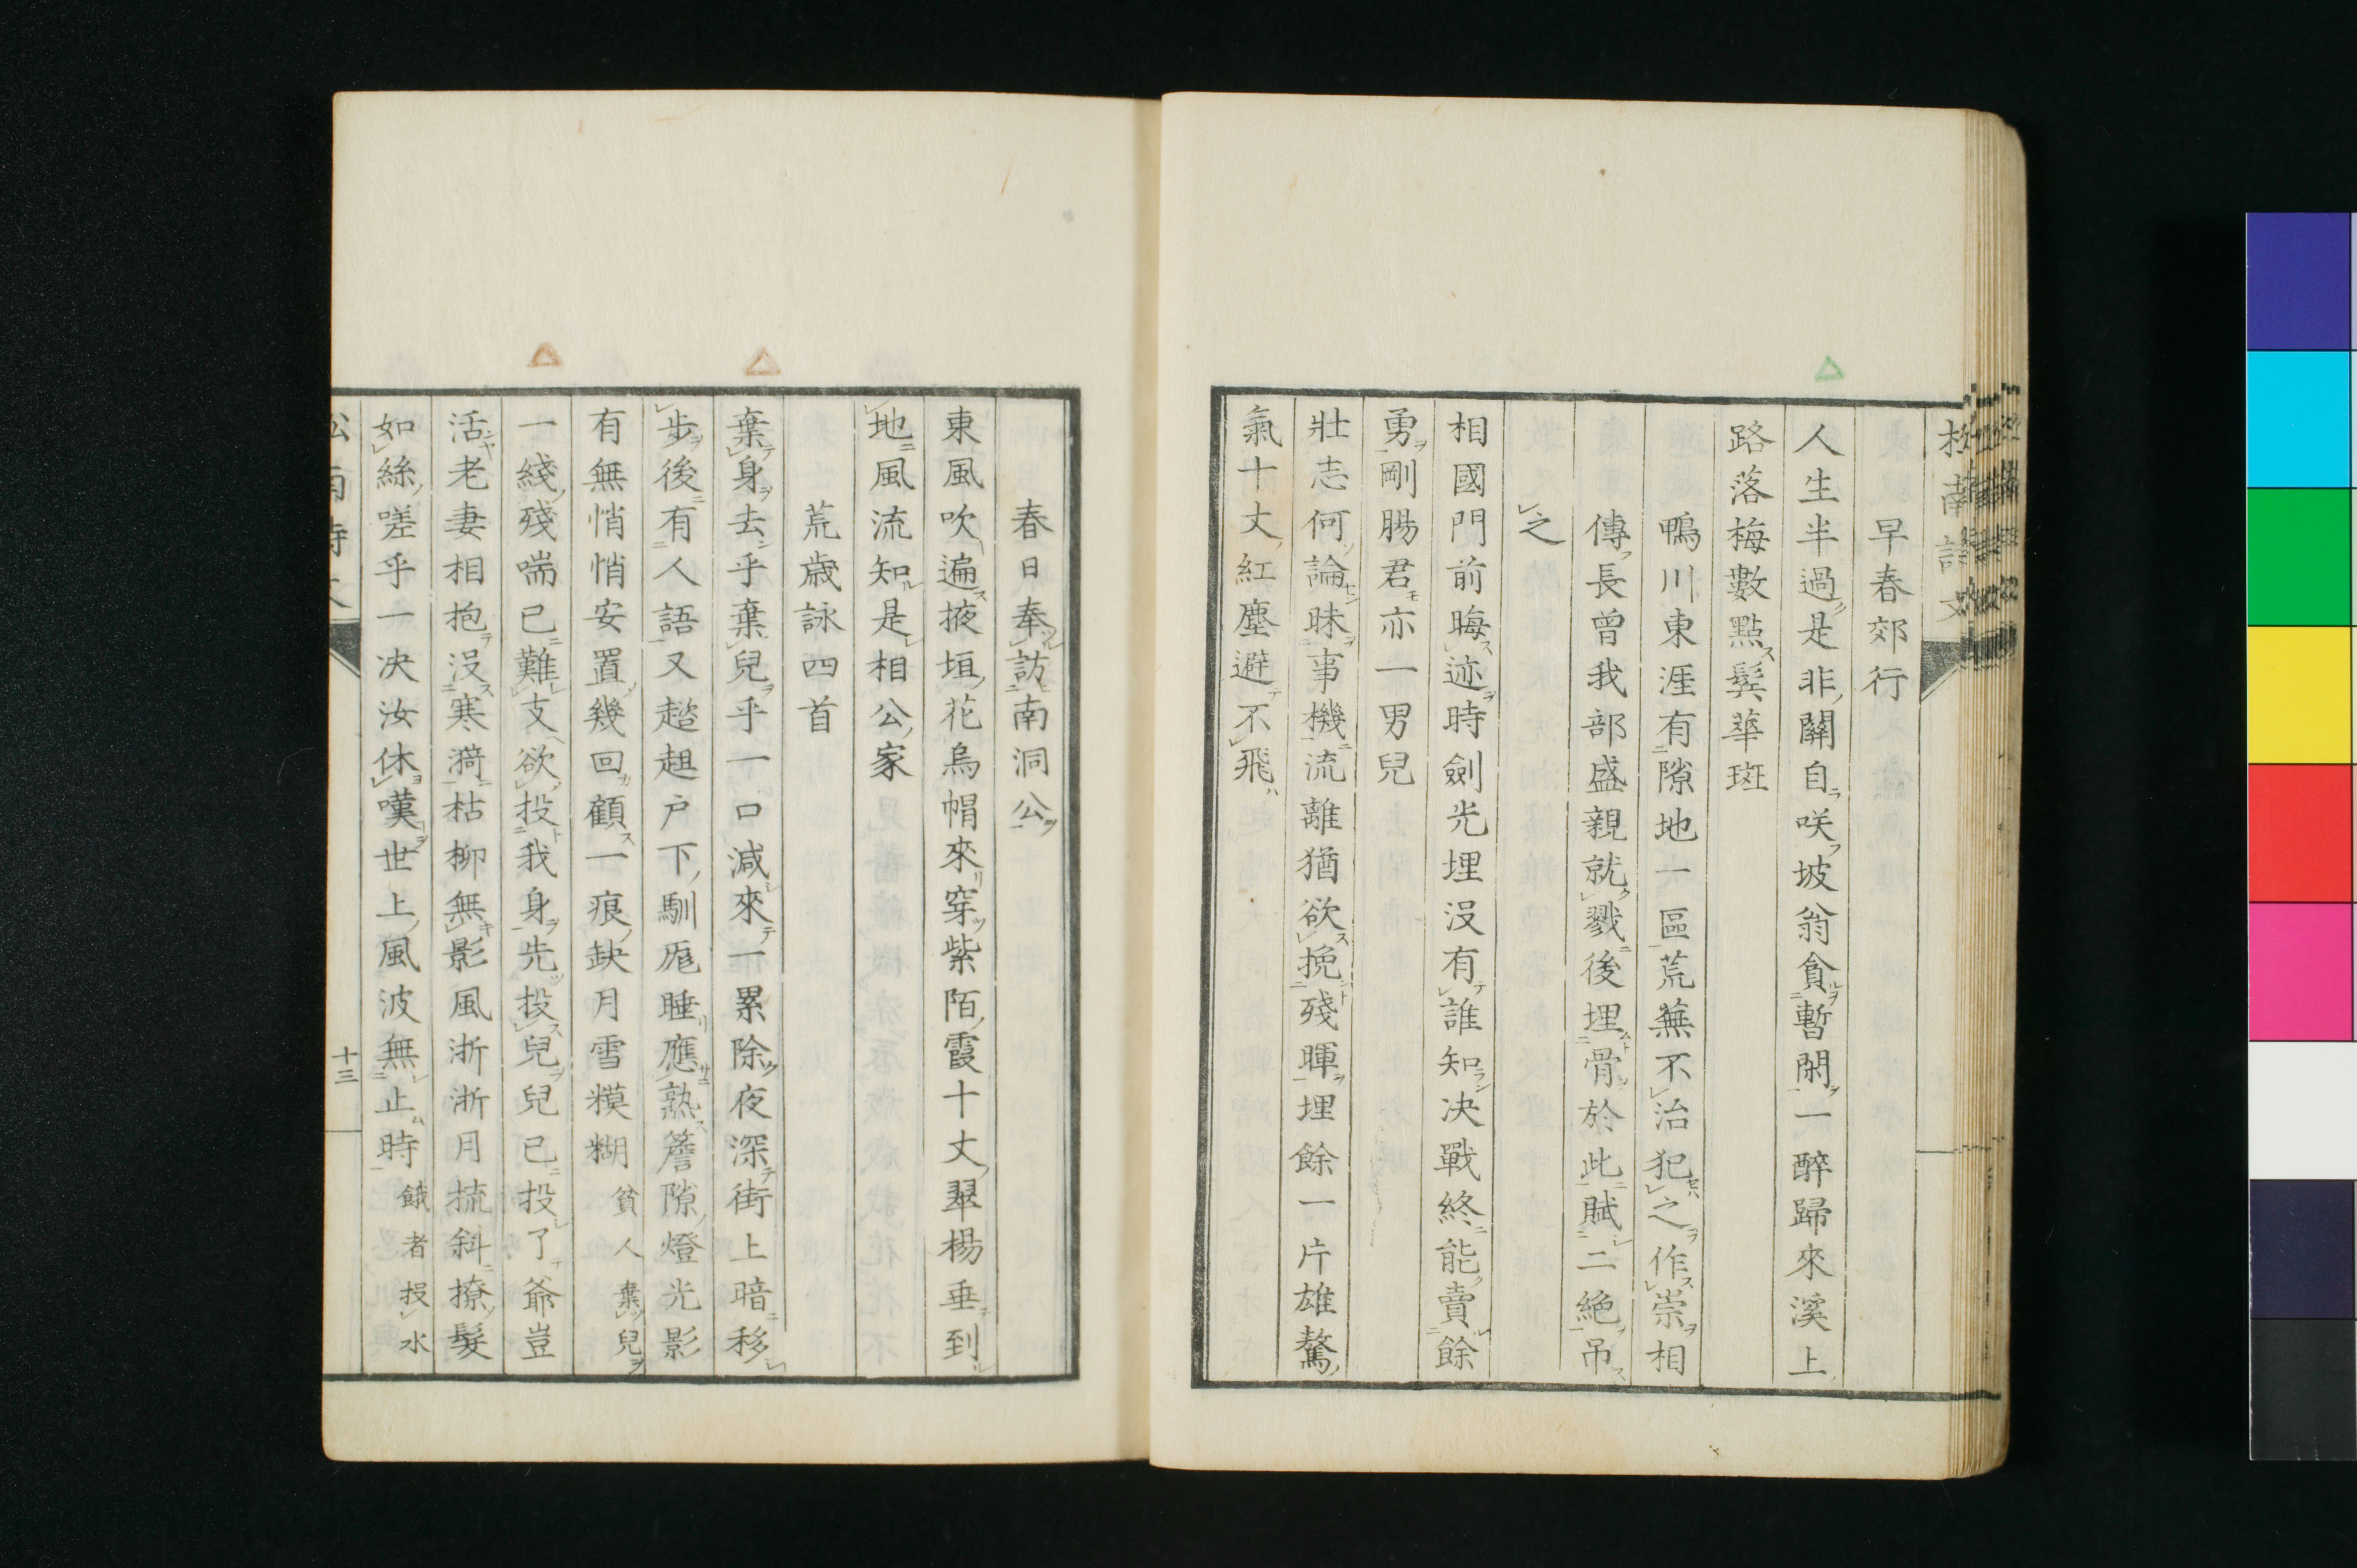 早春郊行
人生半過是非關自咲坡翁貪暫閑一醉歸來溪上
路落梅數點髩華斑
鴨川東涯有隙地一區荒蕪不治犯之作崇相
傳長曾我部盛親就戮後埋骨於此賦二絶吊
之
相國門前晦迹時劍光埋没有誰知决戰終能賣餘
勇剛腸君亦一男兒
壯志何論昧事機流離猶欲挽殘暉埋餘一片雄驁
氣十丈紅塵避不飛
春日奉訪南洞公
東風吹遍掖垣花烏帽來穿紫陌霞十丈翠楊垂到
地風流知是相公家
荒歳詠四首
棄身去乎棄兒乎一口減來一累除夜深街上暗移
步後有人語又趑趄戸下馴厖睡應熟簷隙燈光影
有無悄悄安置幾回顧一痕缺月雪糢糊 貧人棄兒
一綫殘喘已難支欲投我身先投兒兒已投了爺豈
活老妻相抱没寒漪枯柳無影風浙浙月梳斜撩髮
如絲嗟乎一决汝休嘆世上風波無止時 餓者投水
十三